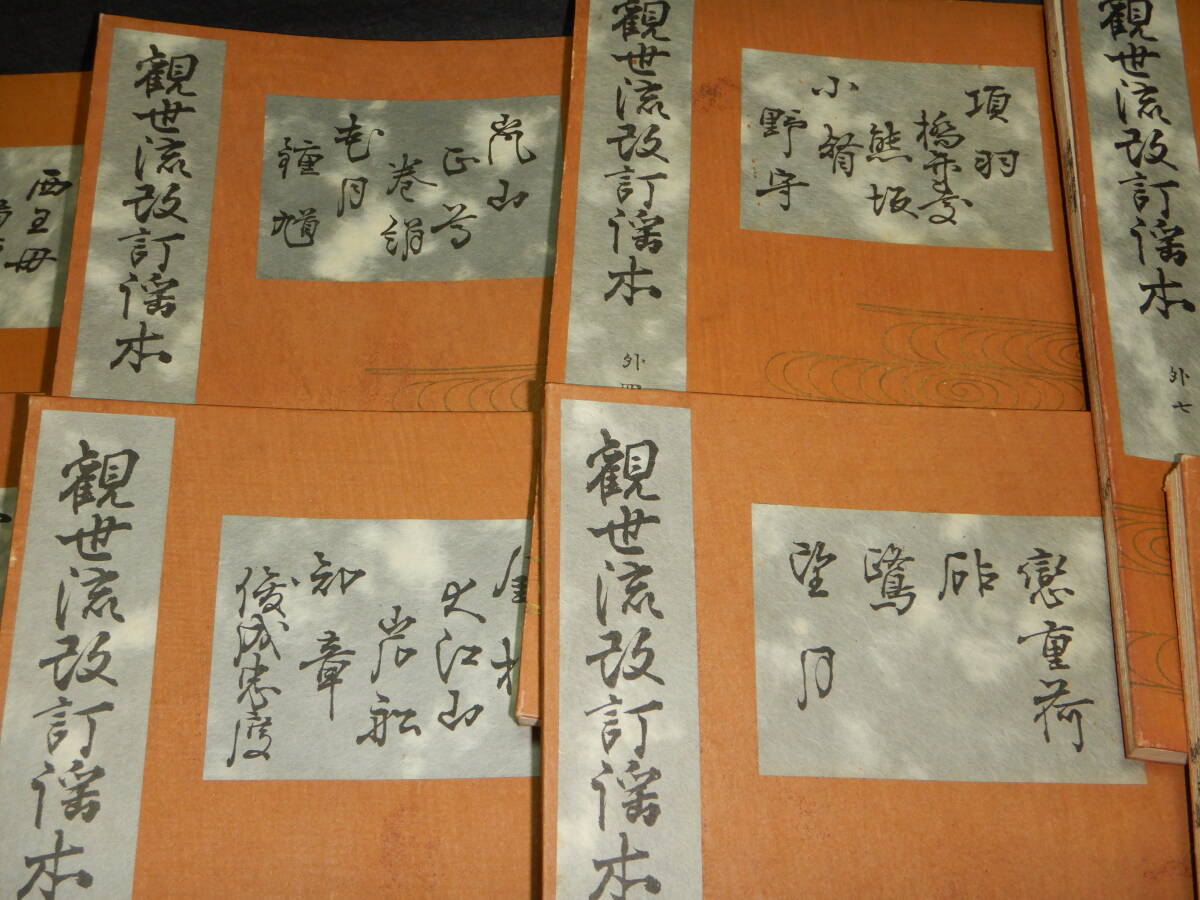 西王母
觀世流改訂謡本
嵐山
正尊
巻絹
花月
鍾馗
觀世流改訂謡本
外四
項羽
橋弁慶
熊坂
小督
野守
觀世流改訂謡本
外七
觀世流改訂謡本
大江山
岩船
知章
俊成忠度
觀世流改訂謡本
戀重荷
砧
鷺
望月